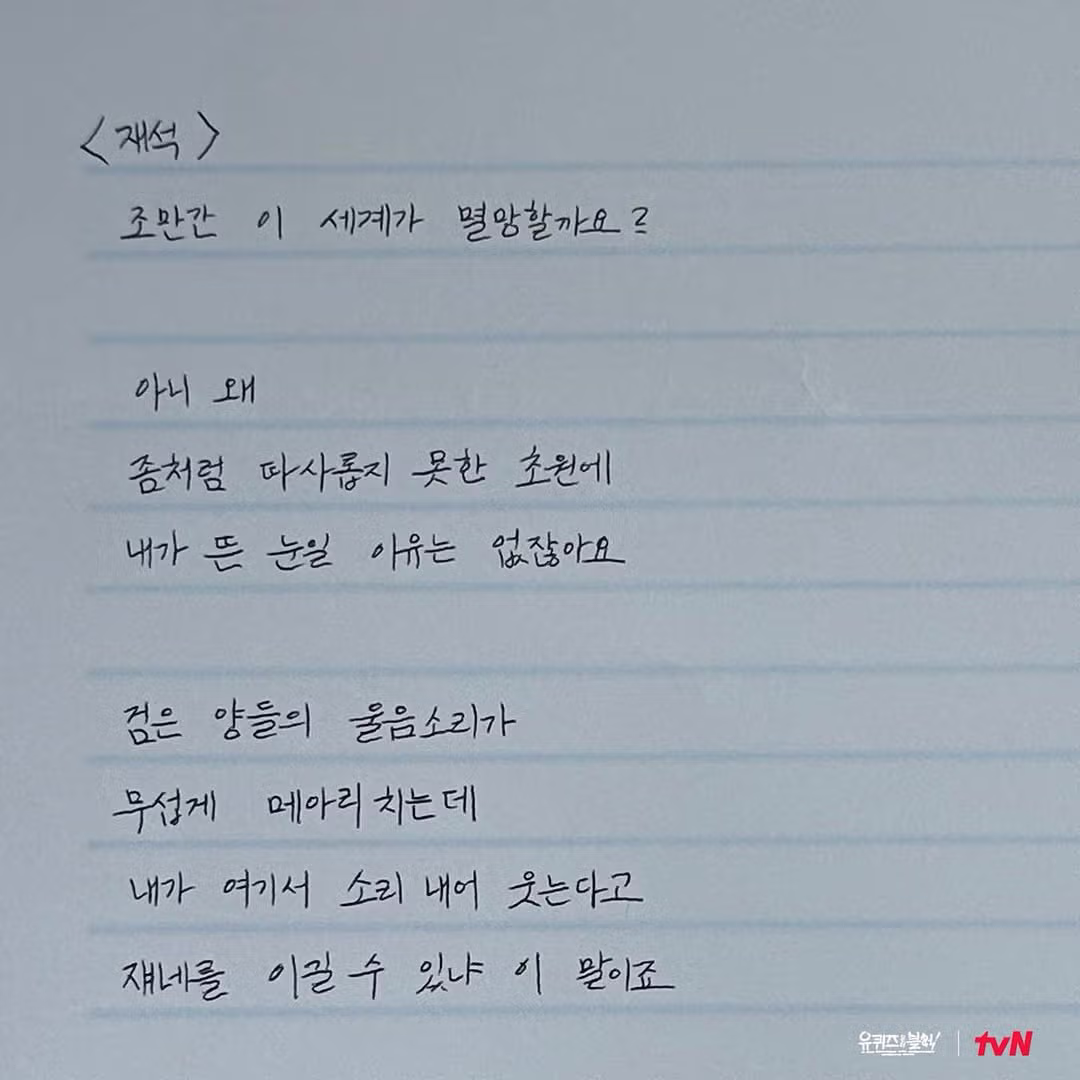 <재석>
조만간 이 세계가 멸망할까요?
아니 왜
좀처럼 따사롭지 못한 초원에
내가 뜬 눈일 이유는 없잖아요
검은 양들의 울음소리가
무섭게 메아리 치는데
내가 여기서 소리 내어 웃는다고
쟤네를 이길 수 있냐 이 말이죠
유퀴즈 온 더 블럭 tvN